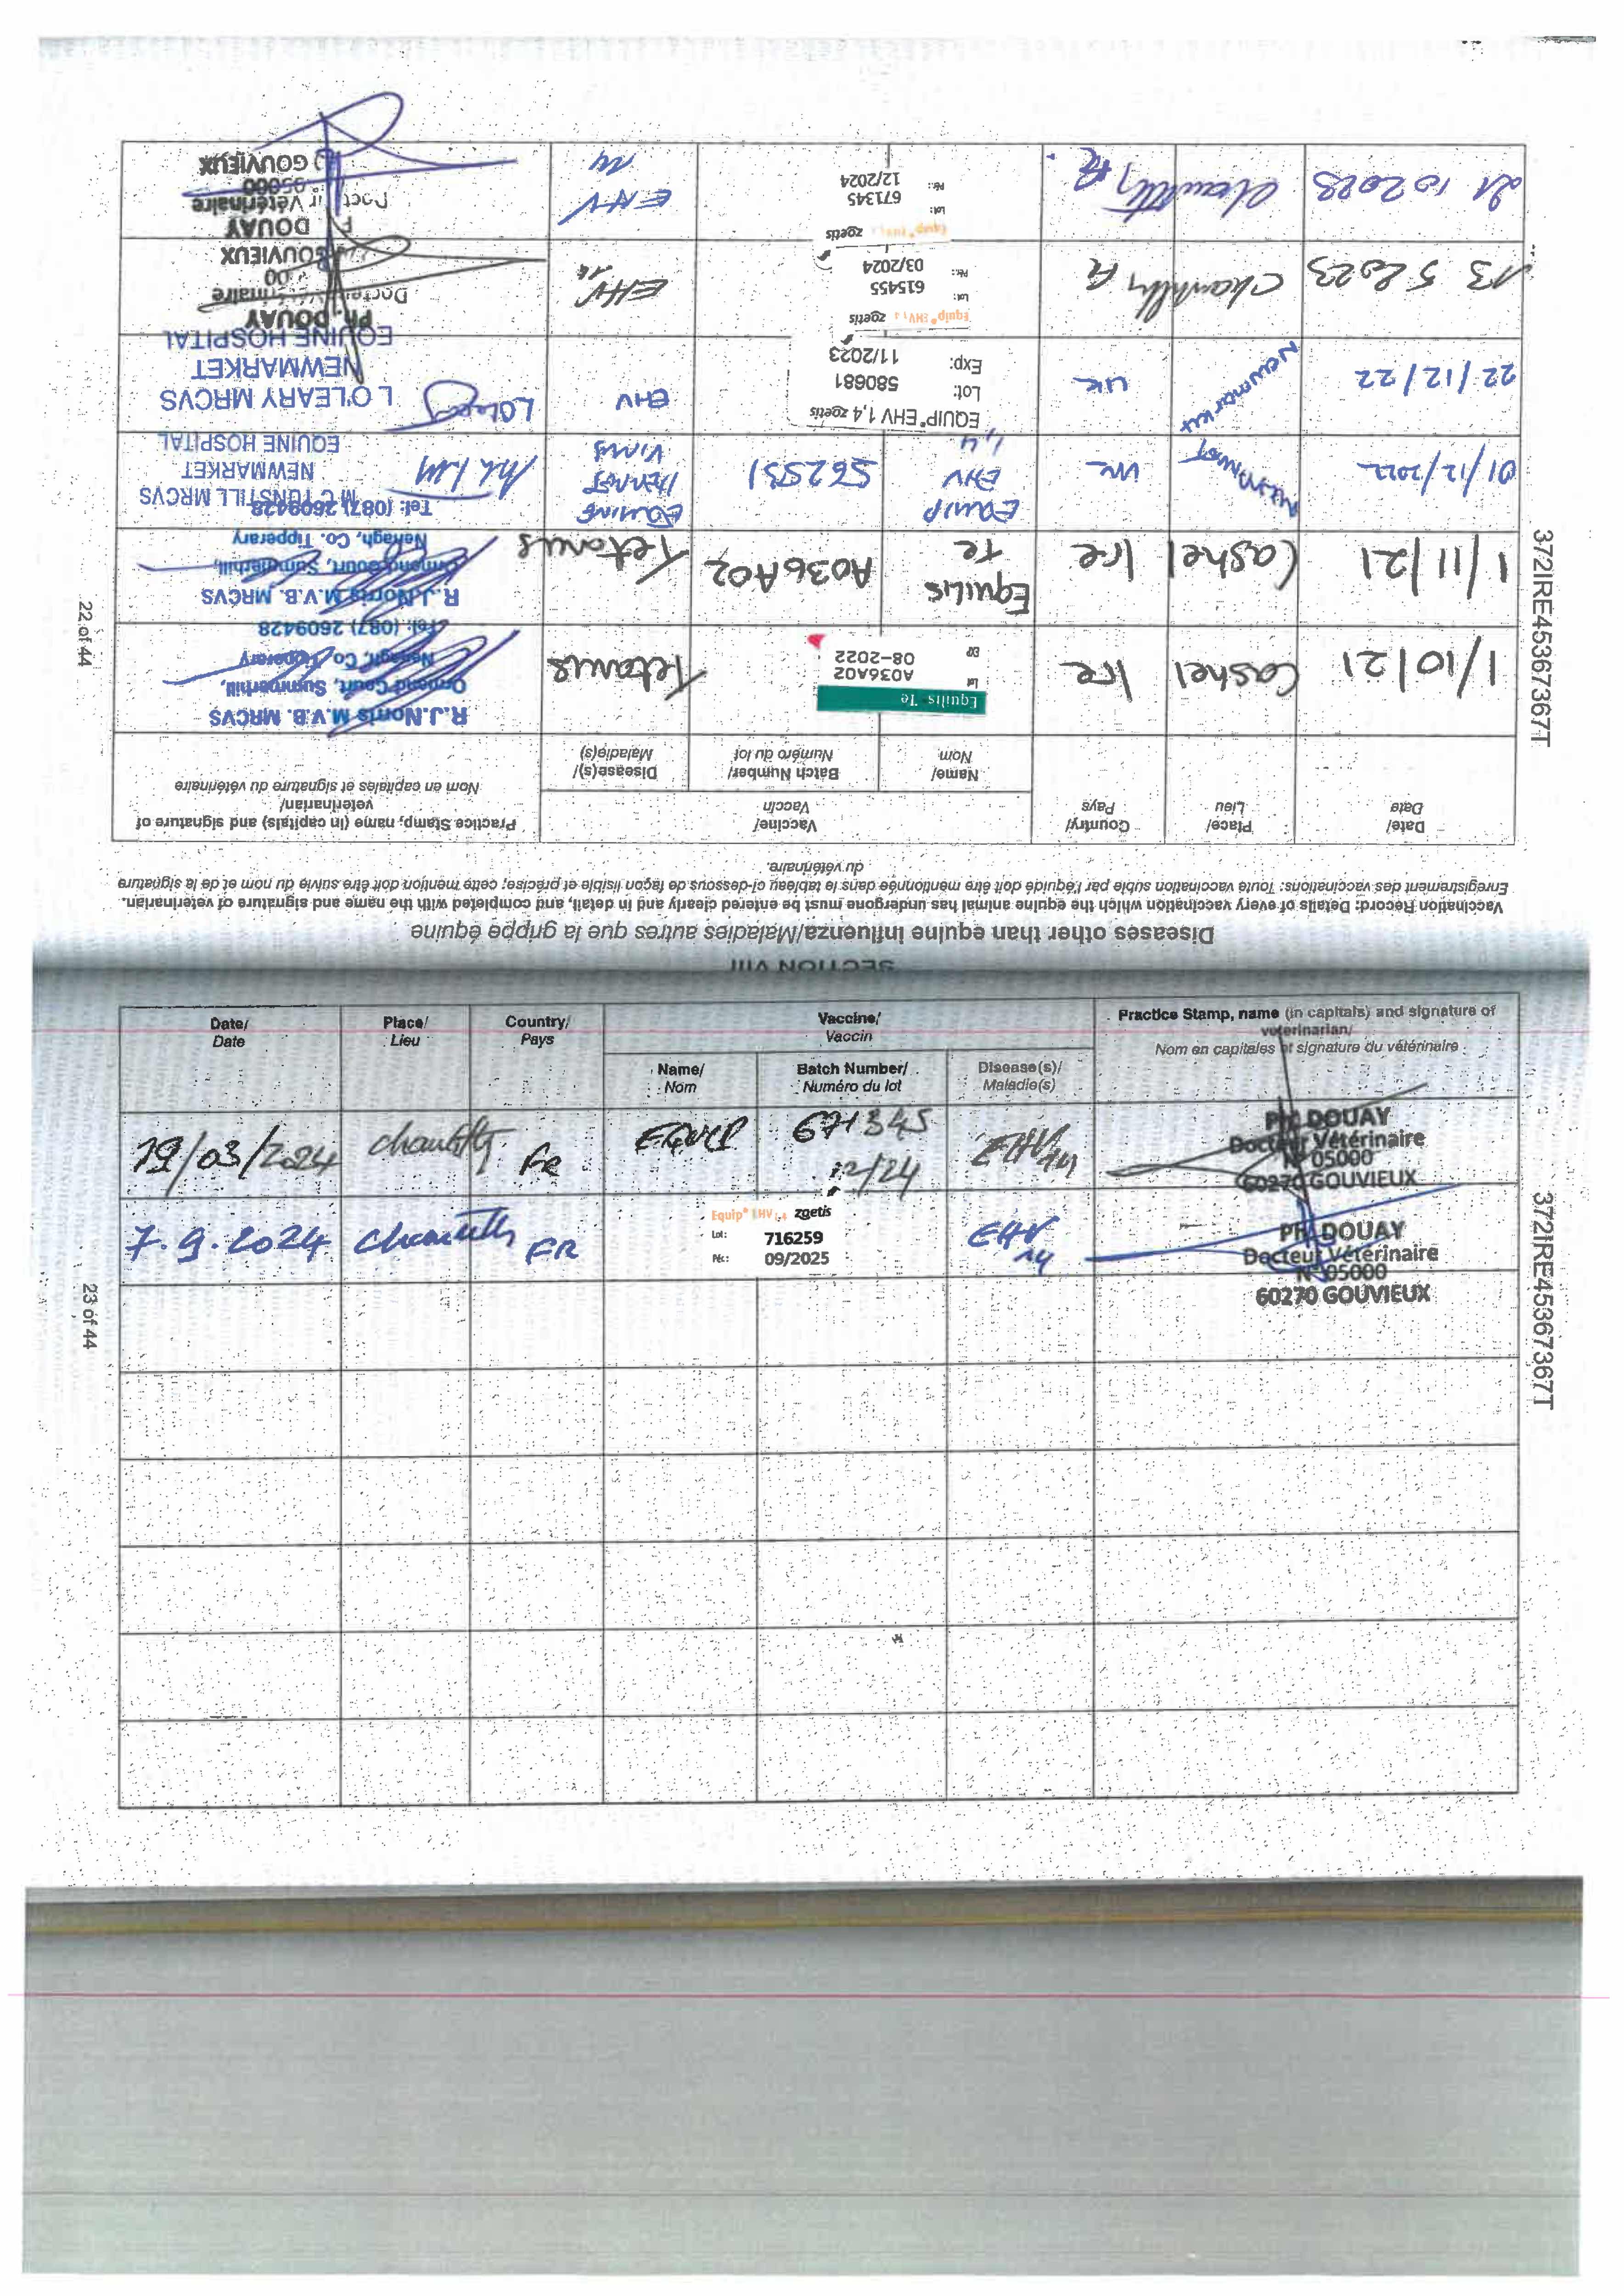 SECTION VIII
Diseases other than equine Influenza/Maladies autres que la grippe équine
Vaccination Record: Details of every vaccination which the equine animal has undergone must be entered clearly and in detail, and completed with the name and signature of veterinarian.
Enregistrement des vaccinations: Toute vaccination subie par l'équidé doit être mentionnée dans le tableau ci-dessous de façon lisible et précise; cette mention doit être suivie du nom et de la signature
du vétérinaire.
Date/
Date
Place/
Lieu
Country/
Pays
Vaccine/
Vaccin
Practice Stamp, name (in capitals) and signature of
veterinarian/
Nom en capitales et signature du vétérinaire
Name/
Nom
Batch Number/
Numéro du lot
Disease(s)/
Maladie(s)
1/10/21
Cashel
Ire
Equilis Te
Lot A036A02
EXP 08-2022
Tetanus
R.J.Norris M.V.B. MRCVS
Ormond Court, Summerhill,
Nenagh, Co. Tipperary
Tel: (087) 2609428
1/11/21
Cashel
Ire
Equilis
Te
A036A02
Tetanus
R.J.Norris M.V.B. MRCVS
Ormond Court, Summerhill,
Nenagh, Co. Tipperary
Tel: (087) 2609428
01/12/2022
Newmarket
UK
EQUIP
EHV
1,4
562551
EQUINE
HERPES
VIRUS
M C TUNSTILL MRCVS
NEWMARKET
EQUINE HOSPITAL
22/12/22
Newmarket
UK
EQUIP® EHV 1,4 zoetis
Lot: 580681
Exp: 11/2023
EHV
L O'LEARY MRCVS
NEWMARKET
EQUINE HOSPITAL
13 5 2023
Chantilly
FR
Equip® EHV 1,4 zoetis
Lot: 615455
Pér.: 03/2024
EHV
14
PH. DOUAY
Docteur Vétérinaire
GOUVIEUX
21 10 2023
Chantilly
FR
zoetis
Lot: 671345
Pér.: 12/2024
EHV
14
DOUAY
Docteur Vétérinaire
05000
GOUVIEUX
22 of 44
372IRE45367367T
Date/
Date
Place/
Lieu
Country/
Pays
Vaccine/
Vaccin
Practice Stamp, name (in capitals) and signature of
veterinarian/
Nom en capitales et signature du vétérinaire
Name/
Nom
Batch Number/
Numéro du lot
Disease(s)/
Maladie(s)
19/03/2024
Chantilly
FR
EQUIP
671345
12/24
EHV 1,4
PH. DOUAY
Docteur Vétérinaire
N° 05000
60270 GOUVIEUX
7.9.2024
Chantilly
FR
Equip® EHV 1,4 zoetis
Lot: 716259
Pér.: 09/2025
EHV
14
PH. DOUAY
Docteur Vétérinaire
N° 05000
60270 GOUVIEUX
23 of 44
372IRE45367367T